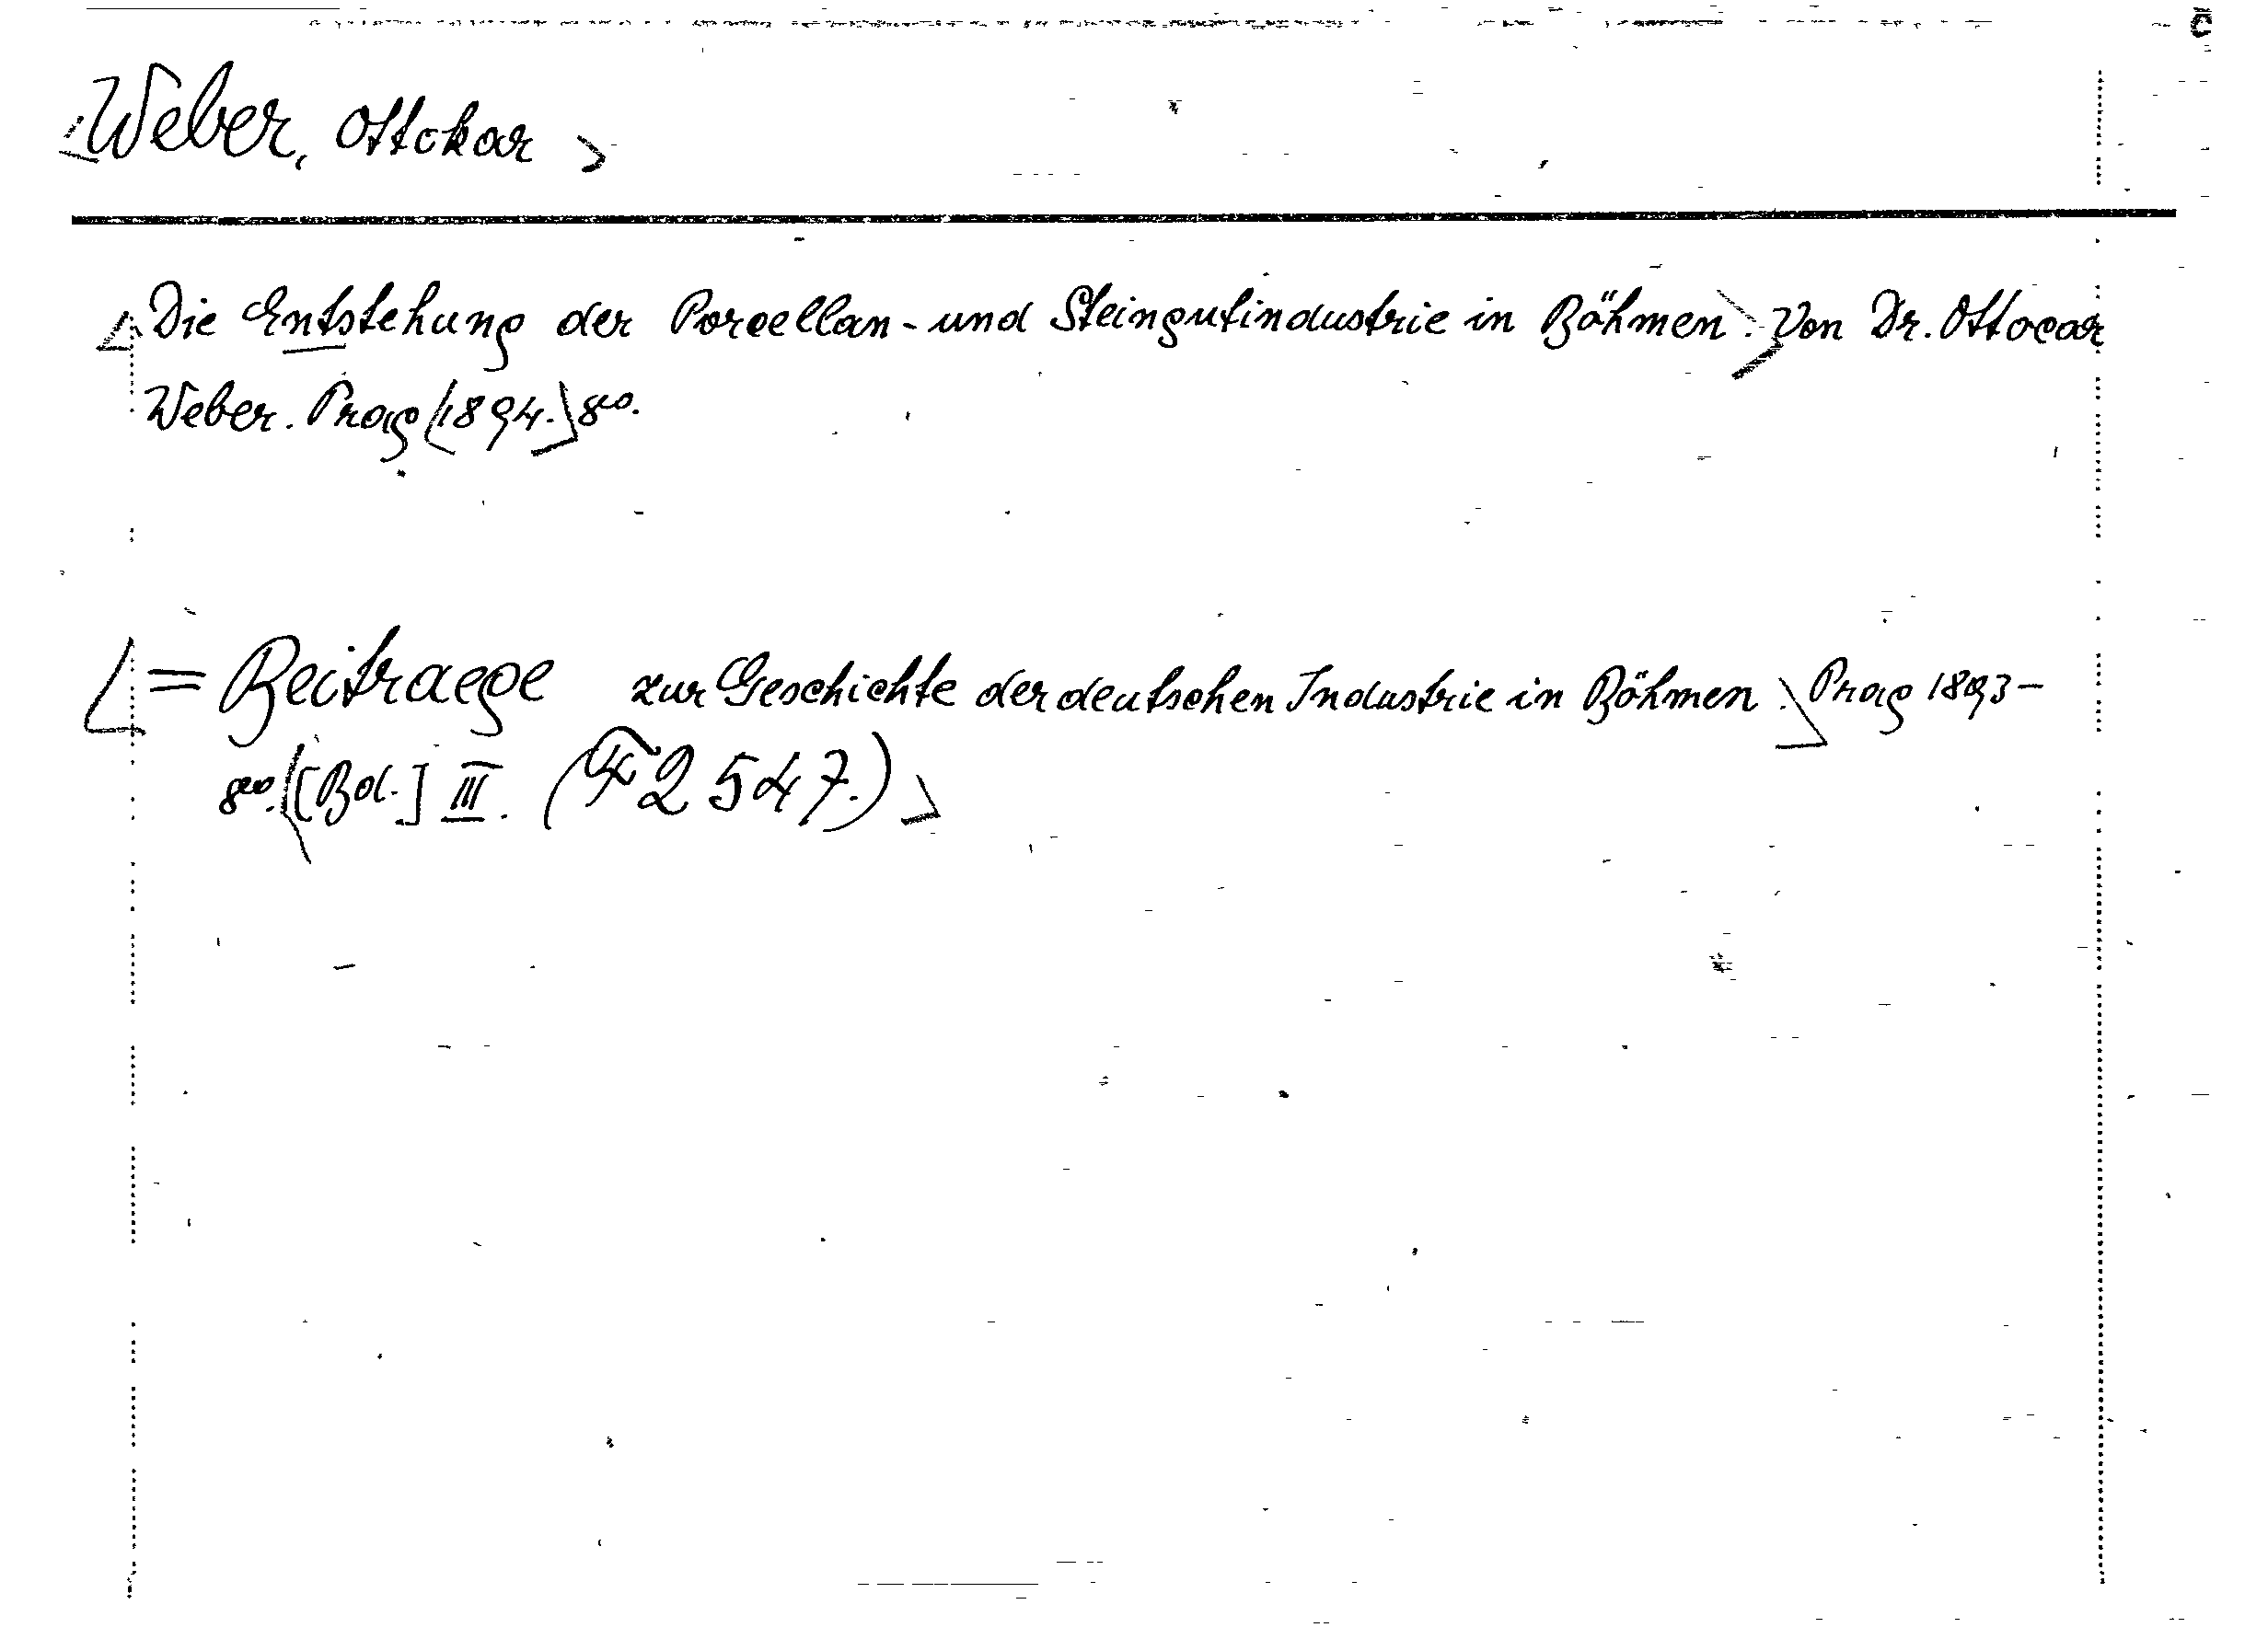 Weber, Ottokar
Die Entstehung der Porcellan- und Steingutindustrie in Böhmen. Von Dr. Ottocar
Weber. Prag 1894. 8vo.
= Beitraege zur Geschichte der deutschen Industrie in Böhmen. Prag 1893-
8vo. [Bd.] III. (42547.)